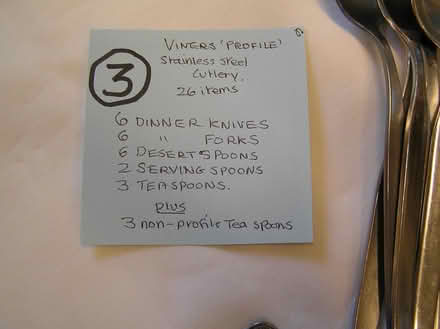 VINERS 'PROFILE'
Stainless steel
Cutlery.
26 items
3
6 DINNER KNIVES
6 " FORKS
6 DESERT SPOONS
2 SERVING SPOONS
3 TEASPOONS.
plus
3 non-profile Tea spoons